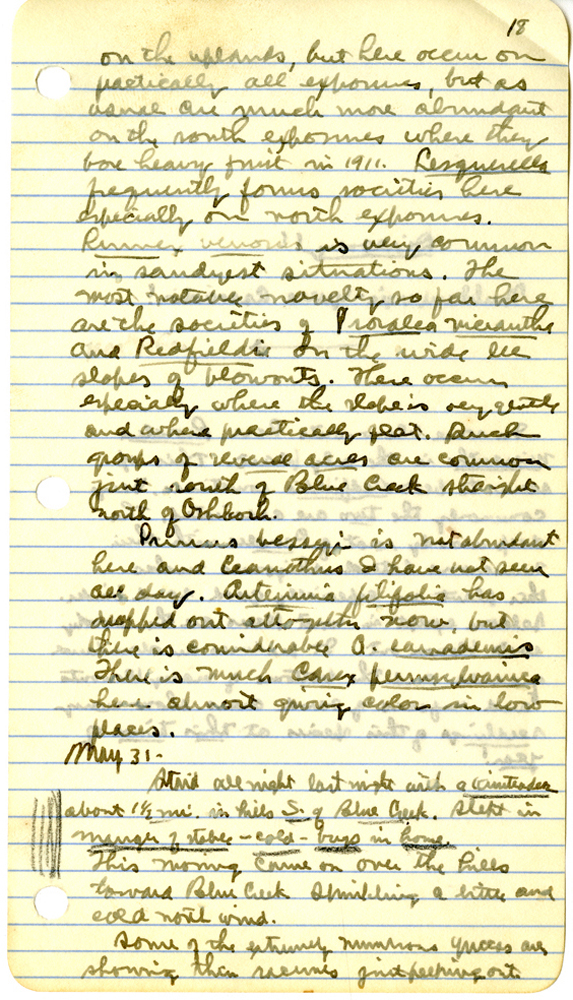 18
on the uplands, but here occur on
practically all exposures, but as
usual are much more abundant
on the south exposures where they
bore heavy fruit in 1911. Lesquerella
frequently forms societies here
especially on north exposures.
Rumex venosus is very common
in sandyest situations. The
most notable novelty so far here
are the societies of Psoralea micrantha
and Redfieldia on the wide lee
slopes of blowouts. These occur
especially where the slope is very gentle
and where practically flat. Such
groups of several acres are common
just north of Blue Creek straight
north of Oshkosh.
Prunus besseyi is not abundant
here and Ceanothus I have not seen
all day. Artemisia filifolia has
dropped out altogether now, but
there is considerable A. canadensis
There is much Carex pennsylvanica
here almost giving color in low
places.
May 31-
Staid all night last night with a
about 1½ mi. in hills S. of Blue Creek. Slept in
manger of stable - cold - bugs in home.
This morning came on over the hills
toward Blue Creek. Sprinkling a little and
cold north wind.
Some of the extremely numerous yuccas are
showing their racemes just peeping out.